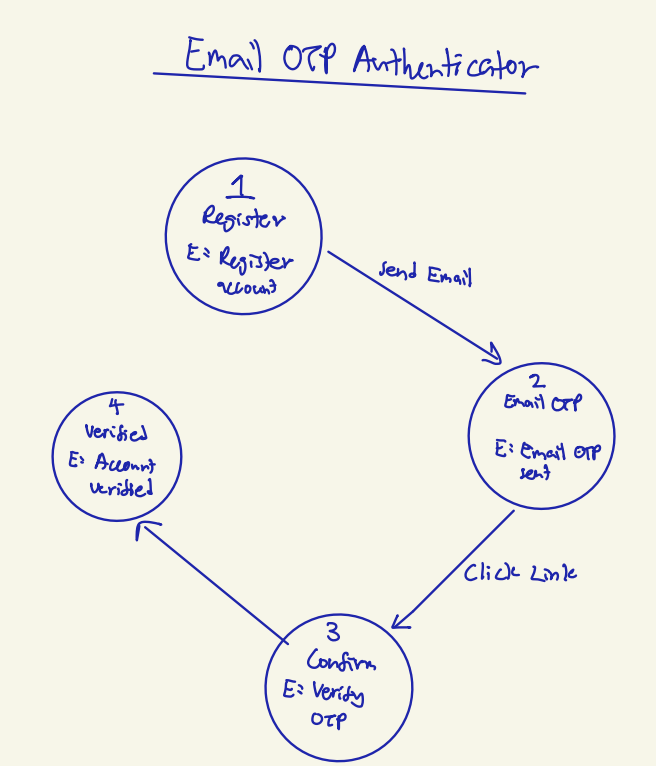 Email OTP Authenticator
1
Register
E: Register
account
Send Email
2
Email OTP
E: Email OTP
sent
Click Link
3
Confirm
E: Verify
OTP
4
Verified
E: Account
verified